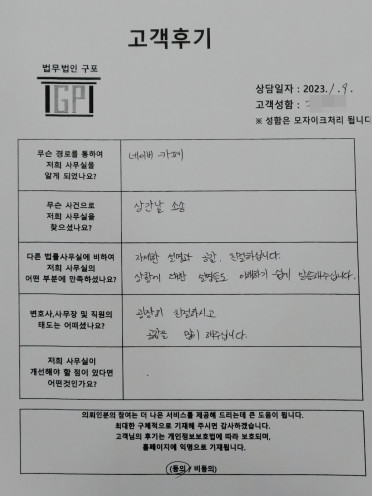 고객후기
법무법인 구포
GP
상담일자 : 2023. 1. 9.
고객성함 :
※ 성함은 모자이크처리 됩니다
무슨 경로를 통하여
저희 사무실을
알게 되었나요?
네이버 카페
무슨 사건으로
저희 사무실을
찾으셨나요?
상간남 소송
다른 법률사무실에 비하여
저희 사무실의
어떤 부분에 만족하셨나요?
자세한 설명과 공감, 친절하십니다.
상황에 대한 설명도 이해하기 쉽게 말씀해주십니다.
변호사,사무장 및 직원의
태도는 어떠셨나요?
굉장히 친절하시고
공감을 많이 해주십니다.
저희 사무실이
개선해야 할 점이 있다면
어떤것인가요?
의뢰인분의 참여는 더 나은 서비스를 제공해 드리는데 큰 도움이 됩니다.
최대한 구체적으로 기재해 주시면 감사하겠습니다.
고객님의 후기는 개인정보보호법에 따라 보호되며,
홈페이지에 익명으로 기재됩니다.
(동의 / 비동의)